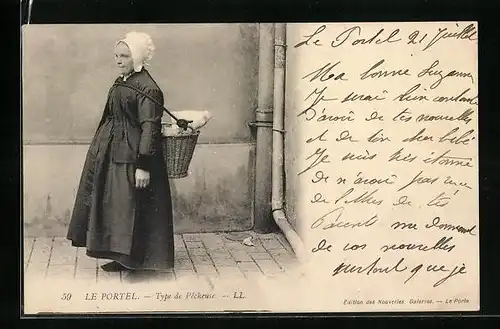 Le Portel 21 Juillet
Ma bonne Suzanne
Je serai bien contente
d'avoir de tes nouvelles
et de ton cher bébé
Je suis très étonnée
de n'avoir pas reçu
de lettres de tes
Parents me donnant
de vos nouvelles
surtout que je
59 LE PORTEL. — Type de Pêcheuse. — LL.
Édition des Nouvelles Galeries. — Le Portel